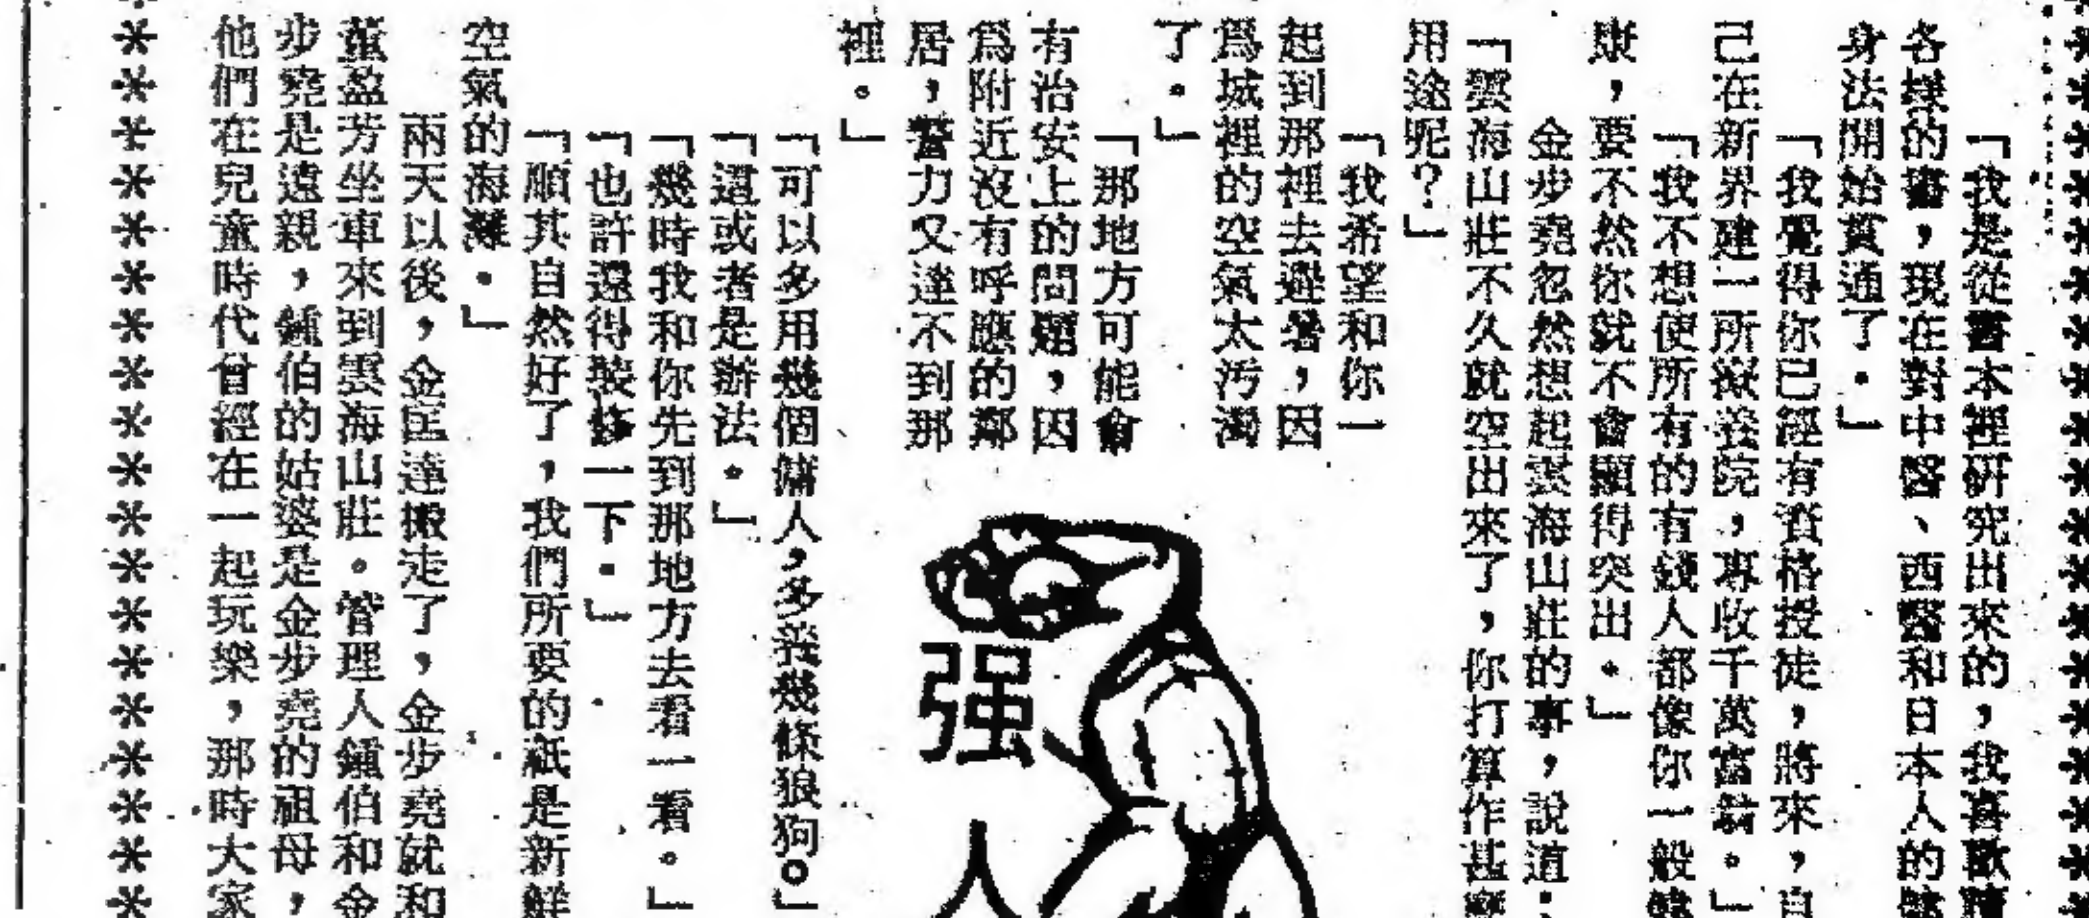 「我是從書本裡研究出來的，我喜歡讀
各樣的書，現在對中醫、西醫和日本人的健
身法開始貫通了。」
「我覺得你已經有資格授徒，將來，自
己在新界建一所療養院，專收千萬富翁。」
「我不想使所有的有錢人都像你一般健
康，要不然你就不會顯得突出。」
金步堯忽然想起雲海山莊的事，說道：
「雲海山莊不久就空出來了，你打算作甚麼
用途呢？」
「我希望和你一
起到那裡去避暑，因
爲城裡的空氣太污濁
了。」
「那地方可能會
有治安上的問題，因
爲附近沒有呼應的鄰
居，警力又達不到那
裡。」
「可以多用幾個傭人，多養幾條狼狗。」
「這或者是辦法。」
「幾時我和你先到那地方去看一看。」
「也許還得裝修一下。」
「順其自然好了，我們所要的祇是新鮮
空氣的海灘。」
兩天以後，金匡達搬走了，金步堯就和
董盈芳坐車來到雲海山莊。管理人鍾伯和金
步堯是遠親，鍾伯的姑婆是金步堯的祖母，
他們在兒童時代曾經在一起玩樂，那時大家
强人